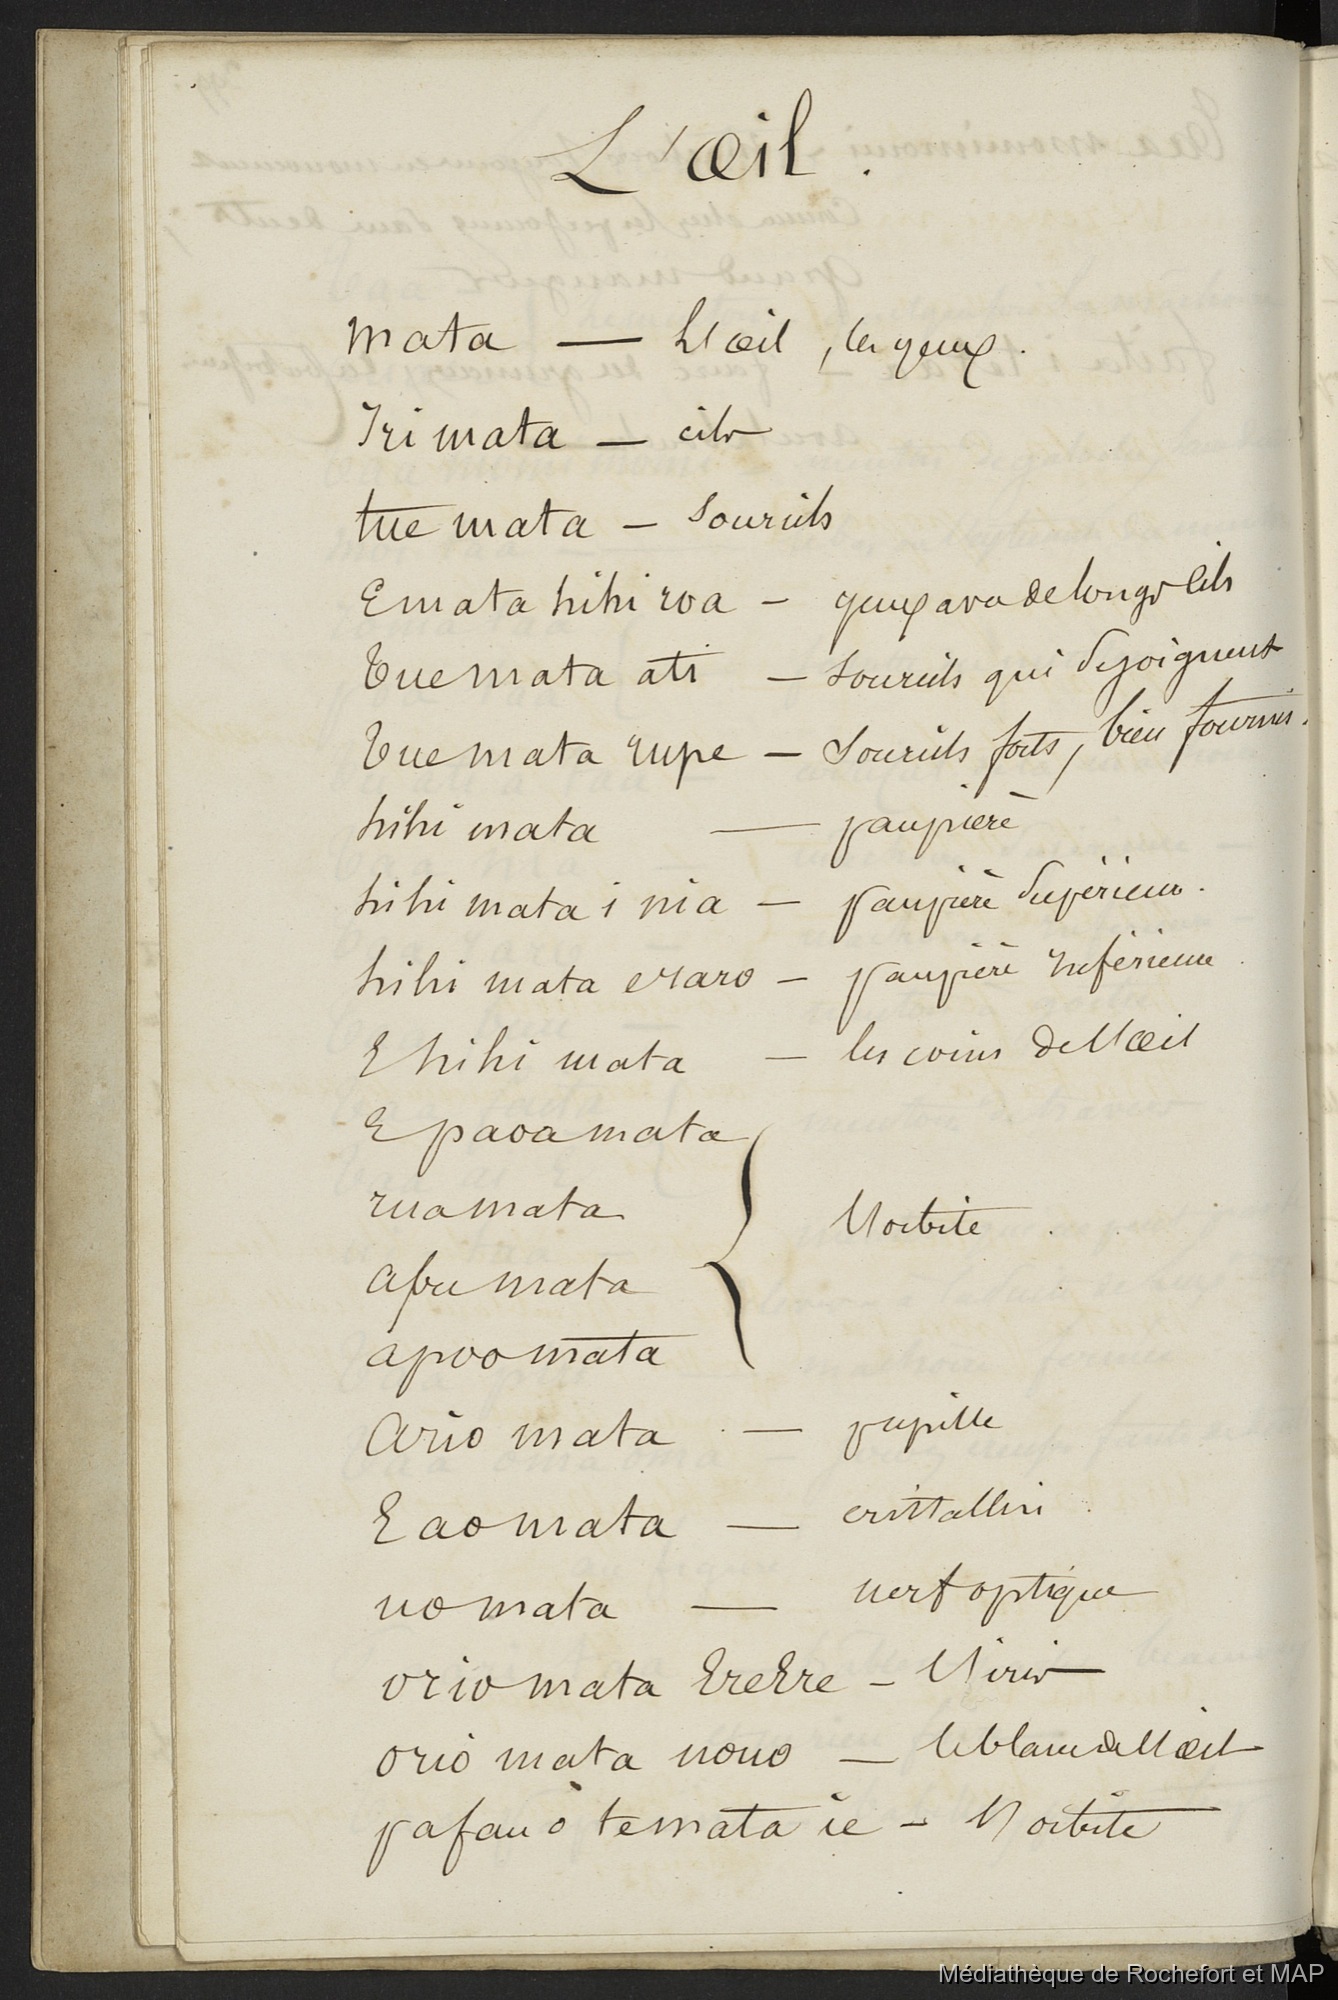 L'œil.
mata — L'œil, les yeux.
Iri mata — cils
tue mata — Sourcils
E mata hihi roa — yeux avec de longs cils
Tue mata ati — Sourcils qui se joignent
Tue mata rupe — Sourcils forts, bien fournis.
hihi mata — paupière
hihi mata i nia — paupière supérieure.
hihi mata eraro — paupière inférieure.
E hihi mata — les coins de l'œil
E paoa mata
rua mata
apu mata
L'orbite.
apoo mata
Orio mata — pupille
E ao mata — cristallin.
uo mata — nerf optique
orio mata EreEre — L'iris
orio mata uouo — le blanc de l'œil
pafau o te mata ie — L'orbite
Médiathèque de Rochefort et MAP